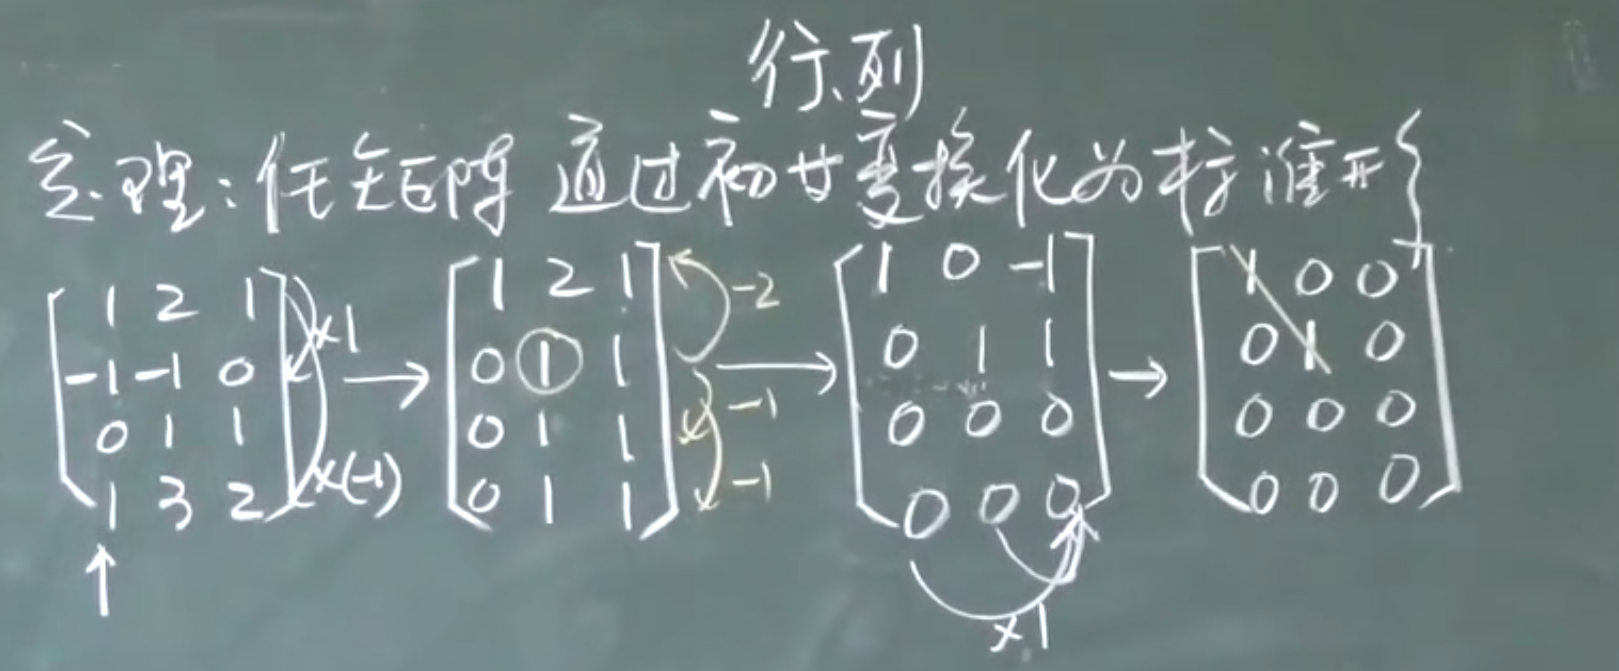 行、列
定理：任矩阵通过初廿变换化为标准形
1 2 1
-1 -1 0
0 1 1
1 3 2
×1
×(-1)
1 2 1
0 1 1
0 1 1
0 1 1
-2
-1
-1
1 0 -1
0 1 1
0 0 0
0 0 0
×1
1 0 0
0 1 0
0 0 0
0 0 0